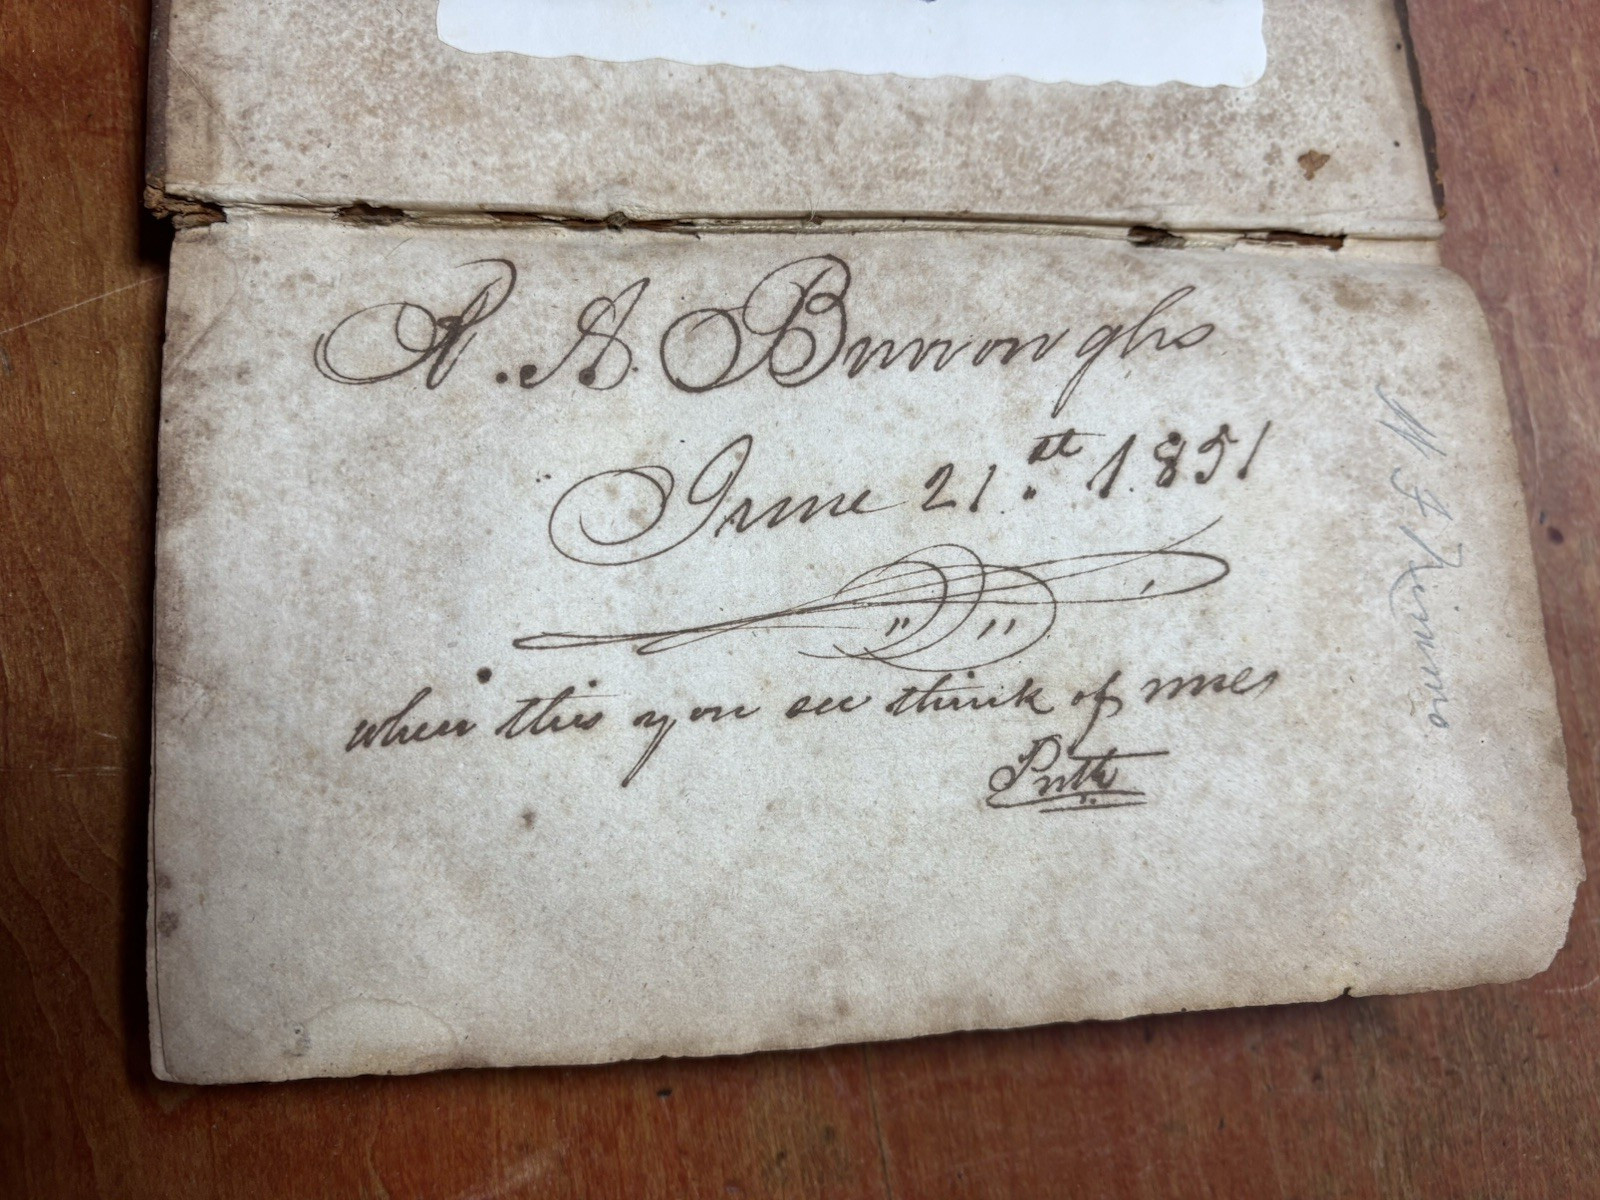 A. A. Burroughs
June 21.st 1.851
when this you see think of me
Ruth